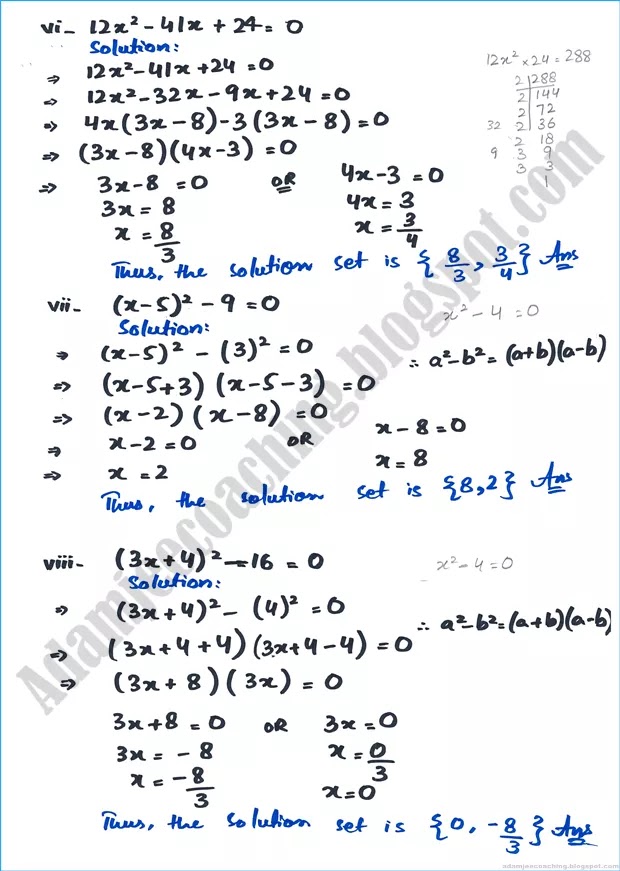 vi- 12x² - 41x + 24 = 0
Solution:
⇒ 12x² - 41x + 24 = 0
⇒ 12x² - 32x - 9x + 24 = 0
⇒ 4x(3x - 8) - 3(3x - 8) = 0
⇒ (3x - 8)(4x - 3) = 0
⇒ 3x - 8 = 0 OR 4x - 3 = 0
3x = 8 4x = 3
x = 8/3 x = 3/4
Thus, the solution set is {8/3, 3/4} Ans
12x² × 24 = 288
2 | 288
2 | 144
2 | 72
32 2 | 36
2 18
9 3 9
3 3
1
vii- (x-5)² - 9 = 0 x² - 4 = 0
Solution:
⇒ (x-5)² - (3)² = 0 ∴ a²-b² = (a+b)(a-b)
⇒ (x-5+3) (x-5-3) = 0
⇒ (x-2) (x-8) = 0
⇒ x-2 = 0 OR x-8 = 0
⇒ x = 2 x = 8
Thus, the solution set is {8,2} Ans
viii- (3x+4)² - 16 = 0 x² - 4 = 0
Solution:
⇒ (3x+4)² - (4)² = 0 ∴ a²-b² = (a+b)(a-b)
⇒ (3x+4+4) (3x+4-4) = 0
⇒ (3x+8) (3x) = 0
3x+8 = 0 OR 3x = 0
3x = -8 x = 0/3
x = -8/3 x = 0
Thus, the solution set is {0, -8/3} Ans
Adamjeecoaching.blogspot.com
adamjeecoaching.blogspot.com